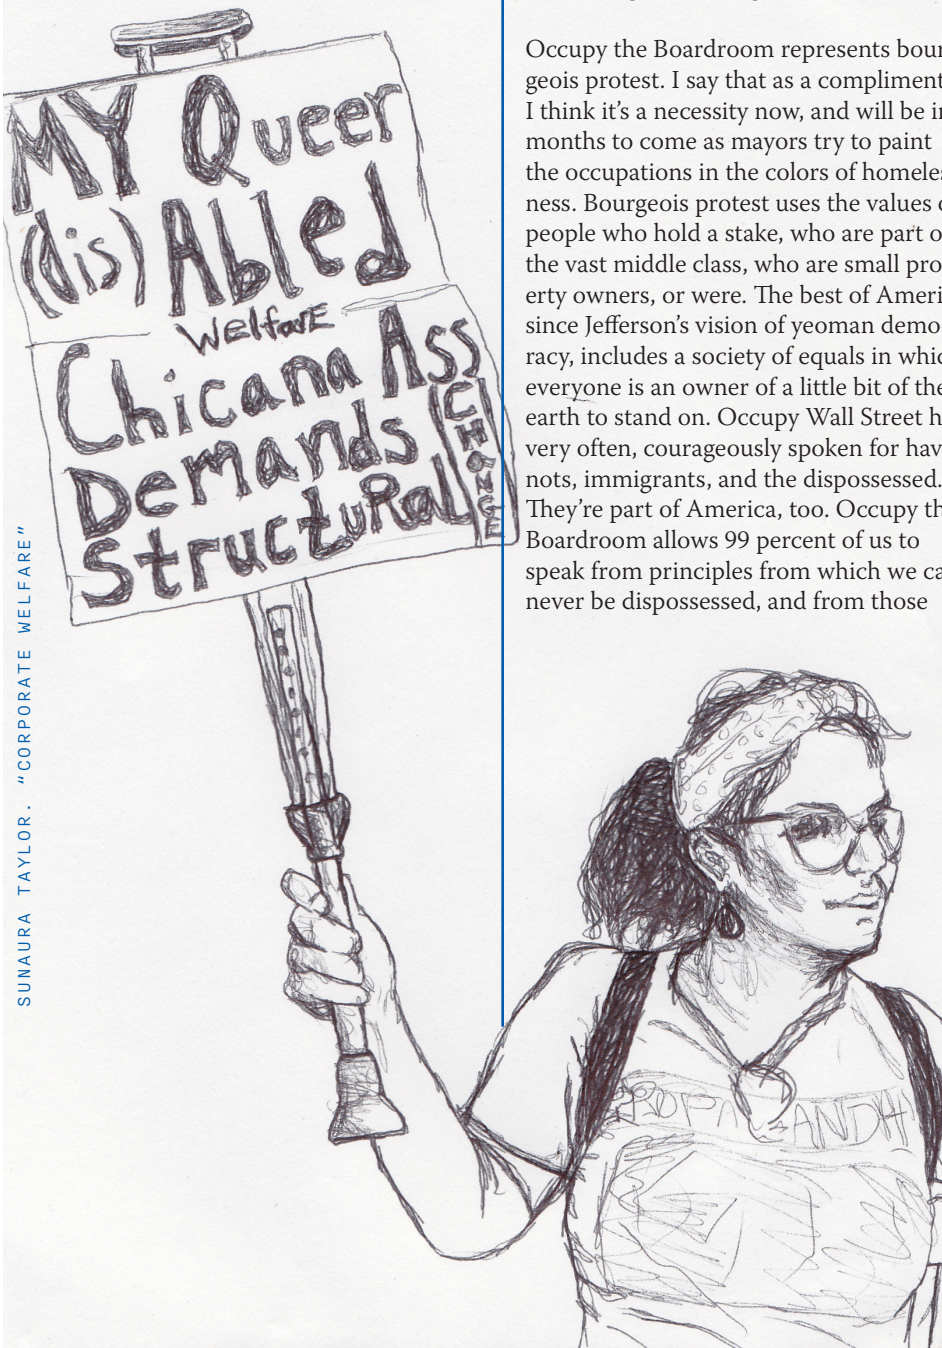 MY Queer
(dis)Abled
Welfare
Chicana Ass
Demands
Structural
CHANGE
SUNAURA TAYLOR. “CORPORATE WELFARE”
Occupy the Boardroom represents bour
geois protest. I say that as a compliment
I think it’s a necessity now, and will be in
months to come as mayors try to paint
the occupations in the colors of homeles
ness. Bourgeois protest uses the values o
people who hold a stake, who are part o
the vast middle class, who are small pro
erty owners, or were. The best of Ameri
since Jefferson’s vision of yeoman demo
racy, includes a society of equals in whic
everyone is an owner of a little bit of the
earth to stand on. Occupy Wall Street h
very often, courageously spoken for hav
nots, immigrants, and the dispossessed.
They’re part of America, too. Occupy th
Boardroom allows 99 percent of us to
speak from principles from which we ca
never be dispossessed, and from those
PROPAGANDHI